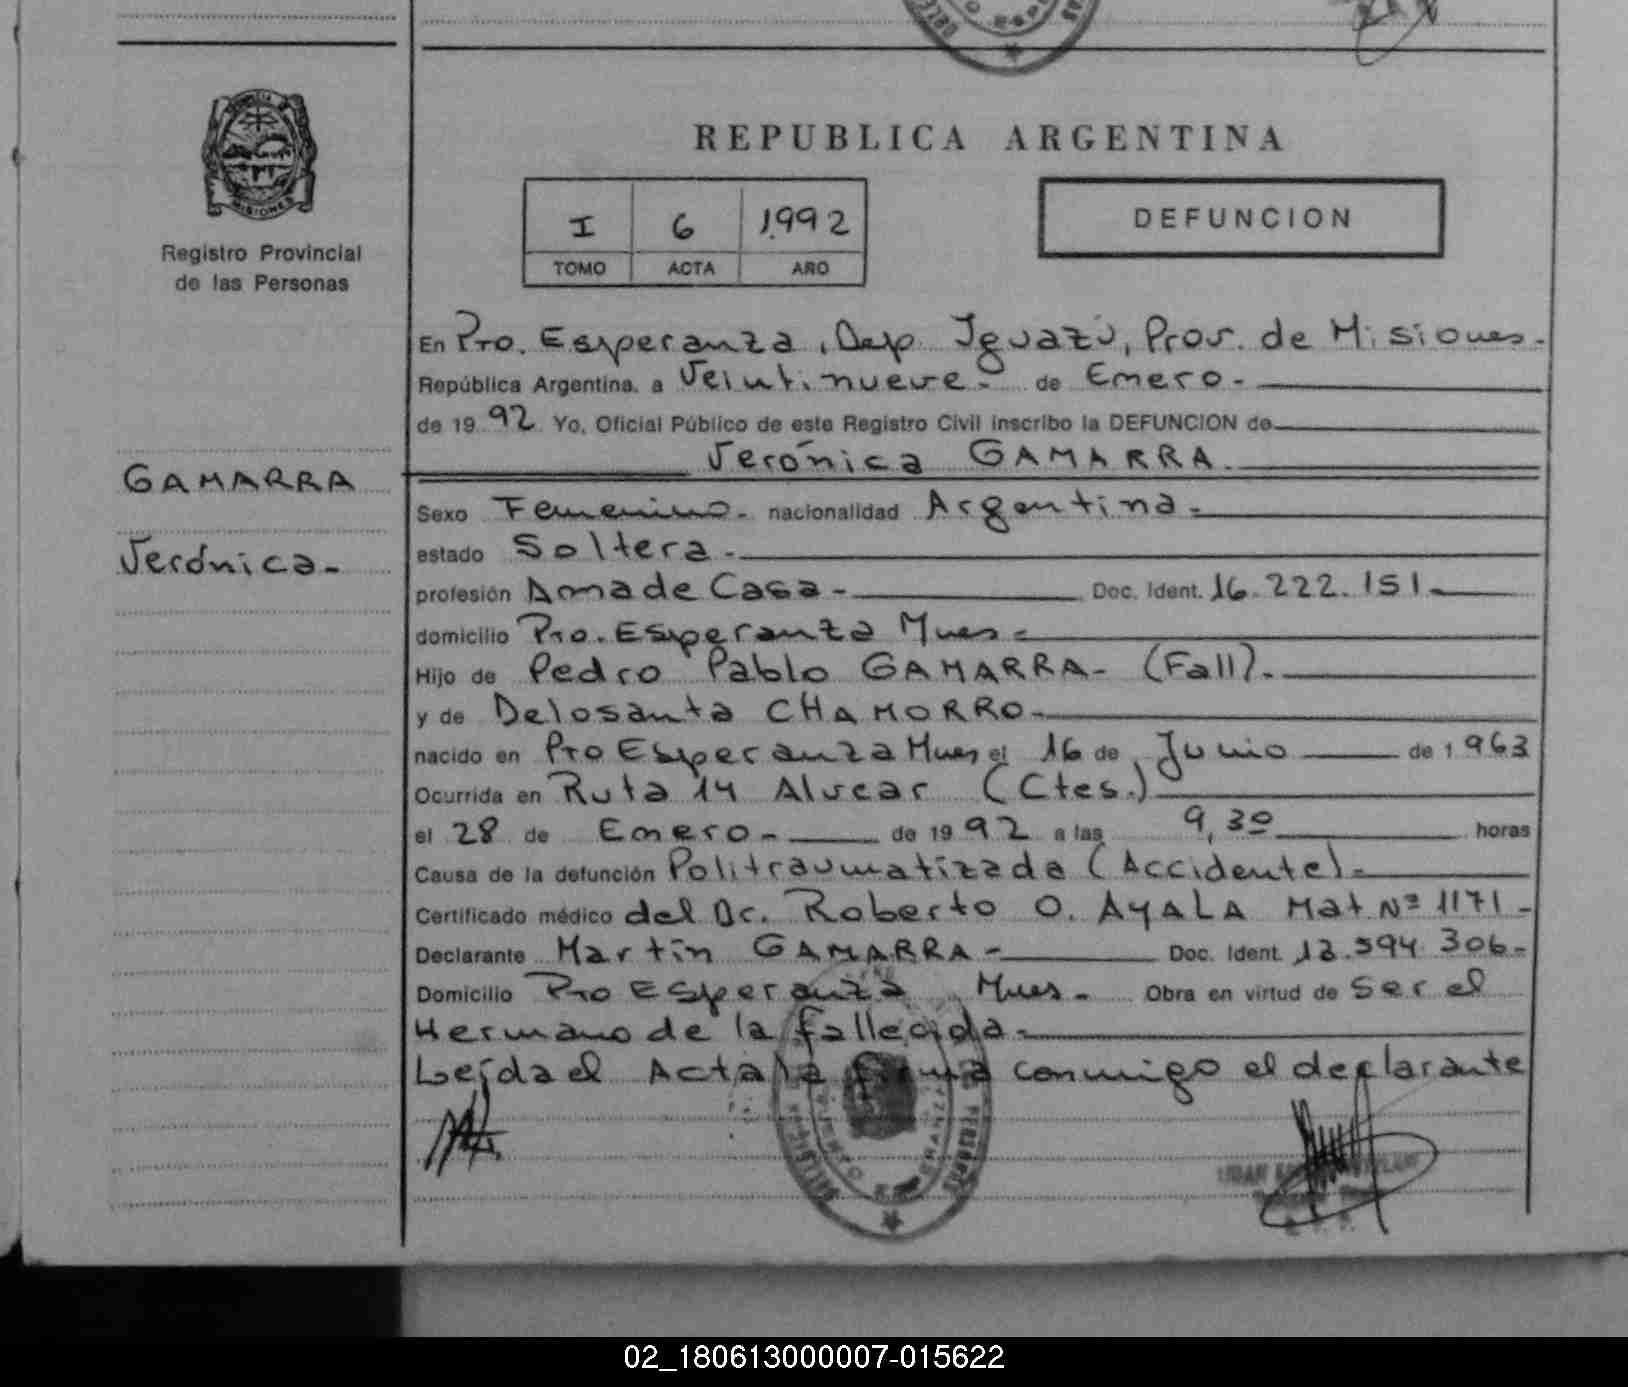 REPUBLICA ARGENTINA
MISIONES
Registro Provincial
de las Personas
I 6 1992
TOMO ACTA AÑO
DEFUNCION
En Pto. Esperanza, Dep. Iguazú, Prov. de Misiones.-
República Argentina, a Veintinueve.- de Enero.-
de 1992 Yo, Oficial Público de este Registro Civil inscribo la DEFUNCION de
Verónica GAMARRA.
GAMARRA
Verónica.-
Sexo Femenino.- nacionalidad Argentina.-
estado Soltera.-
profesión Ama de Casa.- Doc. Ident. 16.222.151.
domicilio Pto. Esperanza Mnes.-
Hijo de Pedro Pablo GAMARRA- (Fall).-
y de Delosanta CHAMORRO.-
nacido en Pto Esperanza Mnes el 16 de Junio de 1963
Ocurrida en Ruta 14 Alvear (Ctes.)
el 28 de Enero.- de 1992 a las 9,30 horas
Causa de la defunción Politraumatizada (Accidente).-
Certificado médico del Dr. Roberto O. AYALA Mat Nº 1171-
Declarante Martín GAMARRA- Doc. Ident. 306.-
Domicilio Pto Esperanza Mnes.- Obra en virtud de Ser el
Hermano de la fallecida.-
Leída el Acta la firma conmigo el declarante
02_180613000007-015622